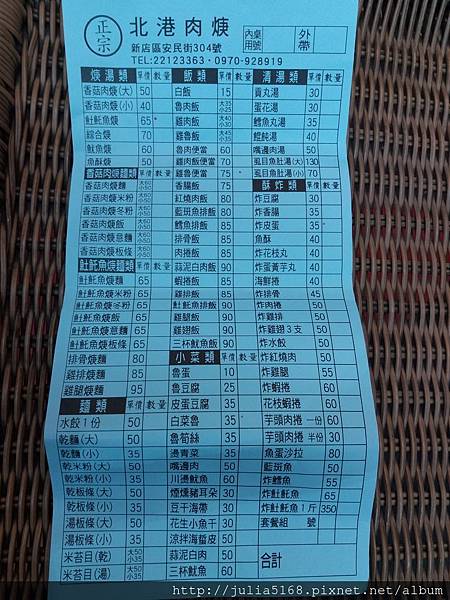 正宗
北港肉焿
新店區安民街304號
TEL:22123363・0970-928919
內用 桌號
外帶
焿湯類 單價 數量
香菇肉焿(大) 50
香菇肉焿(小) 40
魠魠魚焿 65
綜合焿 70
魷魚焿 60
魚酥焿 50
香菇肉焿麵類 單價 數量
香菇肉焿麵 大60 小50
香菇肉焿米粉 大60 小50
香菇肉焿冬粉 大60 小50
香菇肉焿飯 大60 小50
香菇肉焿意麵 大60 小50
香菇肉焿板條 大60 小50
魠魠魚焿麵類 單價 數量
魠魠魚焿麵 65
魠魠魚焿米粉 65
魠魠魚焿冬粉 65
魠魠魚焿飯 65
魠魠魚焿意麵 65
魠魠魚焿板條 65
排骨焿麵 80
雞排焿麵 85
雞腿焿麵 95
麵類 單價 數量
水餃1份 50
乾麵(大) 50
乾麵(小) 35
乾米粉(大) 50
乾米粉(小) 35
乾板條(大) 50
乾板條(小) 35
湯板條(大) 50
湯板條(小) 35
米苔目(乾) 大50 小35
米苔目(湯) 大50 小35
飯類 單價 數量
白飯 15
魯肉飯 大35 小25
雞肉飯 大40 小30
雞魯飯 大45 小35
魯肉便當 60
雞肉飯便當 70
雞魯便當 75
香腸飯 75
紅燒肉飯 80
藍斑魚排飯 80
鱈魚排飯 80
排骨飯 85
肉捲飯 85
蒜泥白肉飯 90
蝦捲飯 85
雞排飯 85
魠魠魚排飯 90
雞腿飯 90
雞翅飯 90
三杯魷魚飯 90
小菜類 單價 數量
魯蛋 10
魯豆腐 25
皮蛋豆腐 35
白菜魯 35
魯筍絲 35
燙青菜 35
嘴邊肉 50
川燙魷魚 60
煙燻豬耳朵 30
豆干海帶 30
花生小魚干 30
涼拌海蜇皮 50
蒜泥白肉 50
三杯魷魚 60
清湯類 單價 數量
貢丸湯 30
蛋花湯 30
鱈魚丸湯 35
餛飩湯 40
嘴邊肉湯 50
虱目魚肚湯(大) 130
虱目魚肚湯(小) 70
酥炸類 單價 數量
炸豆腐 30
炸香腸 35
炸皮蛋 35
魚酥 40
炸花枝丸 40
炸蛋黃芋丸 40
海鮮捲 40
炸排骨 45
炸肉捲 50
炸雞排 50
炸雞翅3支 50
炸水餃 50
炸紅燒肉 50
炸雞腿 55
炸蝦捲 60
花枝蝦捲 60
芋頭肉捲 一份 60
芋頭肉捲 半份 30
魚蛋沙拉 80
藍斑魚 50
炸鱈魚 55
炸魠魠魚 65
炸魠魠魚1斤 350
套餐組 號
合計
http://julia5168.pixnet.net/album